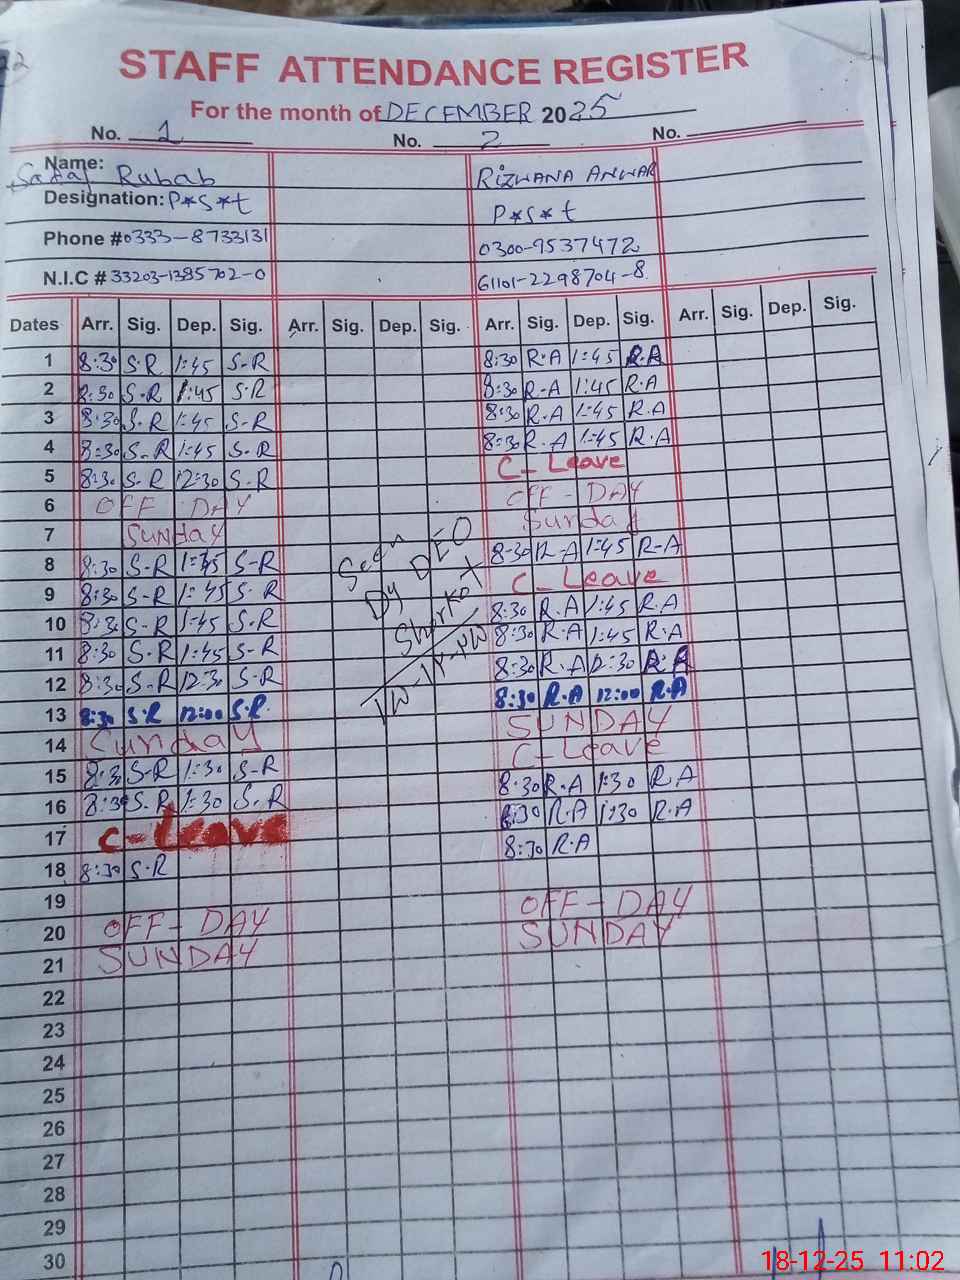 STAFF ATTENDANCE REGISTER
For the month of DECEMBER 2025
No. 1 No. 2 No.
Name: Rubab RIZWANA ANWAR
Designation: P*S*t P*S*t
Phone # 0333-8733131 0300-9537472
N.I.C # 33203-1385702-0 61101-2298704-8
Dates Arr. Sig. Dep. Sig. Arr. Sig. Dep. Sig. Arr. Sig. Dep. Sig. Arr. Sig. Dep. Sig.
1 8:30 S-R 1:45 S-R 8:30 R.A 1:45 R.A
2 8:30 S-R 1:45 S-R 8:30 R-A 1:45 R.A
3 8:30 S-R 1:45 S-R 8:30 R.A 1:45 R.A
4 8:30 S-R 1:45 S-R 8:30 R.A 1:45 R.A
5 8:30 S-R 12:30 S-R C-Leave
6 OFF DAY OFF-DAY
7 Sunday Sunday
8 8:30 S-R 1:45 S-R 8:30 R-A 1:45 R-A
9 8:30 S-R 1:45 S-R C-Leave
10 8:30 S-R 1:45 S-R 8:30 R.A 1:45 R.A
11 8:30 S-R 1:45 S-R 8:30 R.A 1:45 R.A
12 8:30 S-R 12:30 S-R 8:30 R.A 12:30 R.A
13 8:30 S.R 12:00 S.R 8:30 R.A 12:00 R.A
14 Sunday SUNDAY
15 8:30 S-R 1:30 S-R C-Leave
16 8:30 S-R 1:30 S-R 8:30 R.A 1:30 R.A
17 C-Leave 8:30 R.A 1:30 R.A
18 8:30 S-R 8:30 R.A
19
20 OFF-DAY OFF-DAY
21 SUNDAY SUNDAY
22
23
24
25
26
27
28
29
30
Seen
Dy DEO
Shorkot
18-12-25 11:02